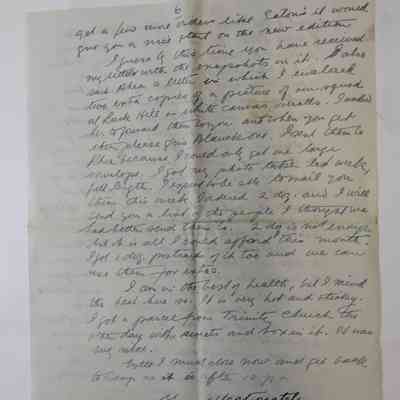 6
get a few more orders like Eaton's it would
give you a nice start on the new edition
I guess by this time you have received
my letter with the snapshots in it. I also
sent Rhea a letter in which I enclosed
two extra copies of a picture of our squad
at Rock Hill in white canvas. I asked
her to forward them to you and when you get
them please give Blanche one. I sent them to
Rhea because I could only get one large
envelope. I got my photo taken last week,
full length. I expect to be able to mail you
them this week. I ordered 2 dz. and I will
send you a list of the people I thought we
had better send them to. 2 dz is not enough
but it is all I could afford this month.
I got 1 dz. postcards of it too and we can
use them for extras.
I am in the best of health, but I mind
the heat here. It is very hot and sticky.
I got a parcel from Trinity Church the
other day with sweets and box in it. It was
very nice.
Well I must close now and get back
to camp as it is after 10 p.m.
affectionately